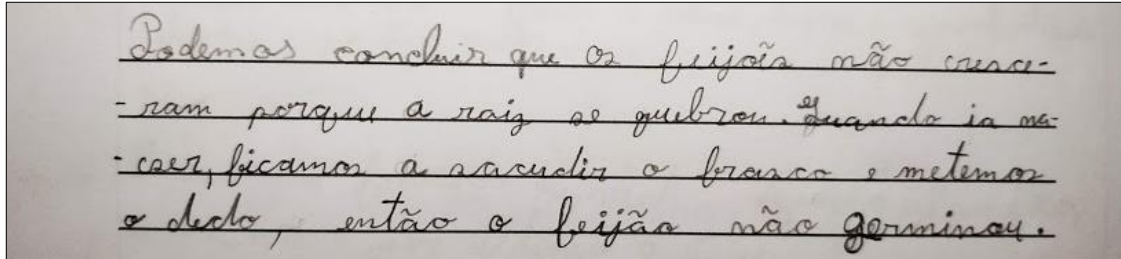 Podemos concluir que os feijõis não cresce-
-ram porque a raiz se quebrou. Quando ia na-
-cser, ficamos a sacudir o frasco e metemos
o dedo, então o feijão não germinou.